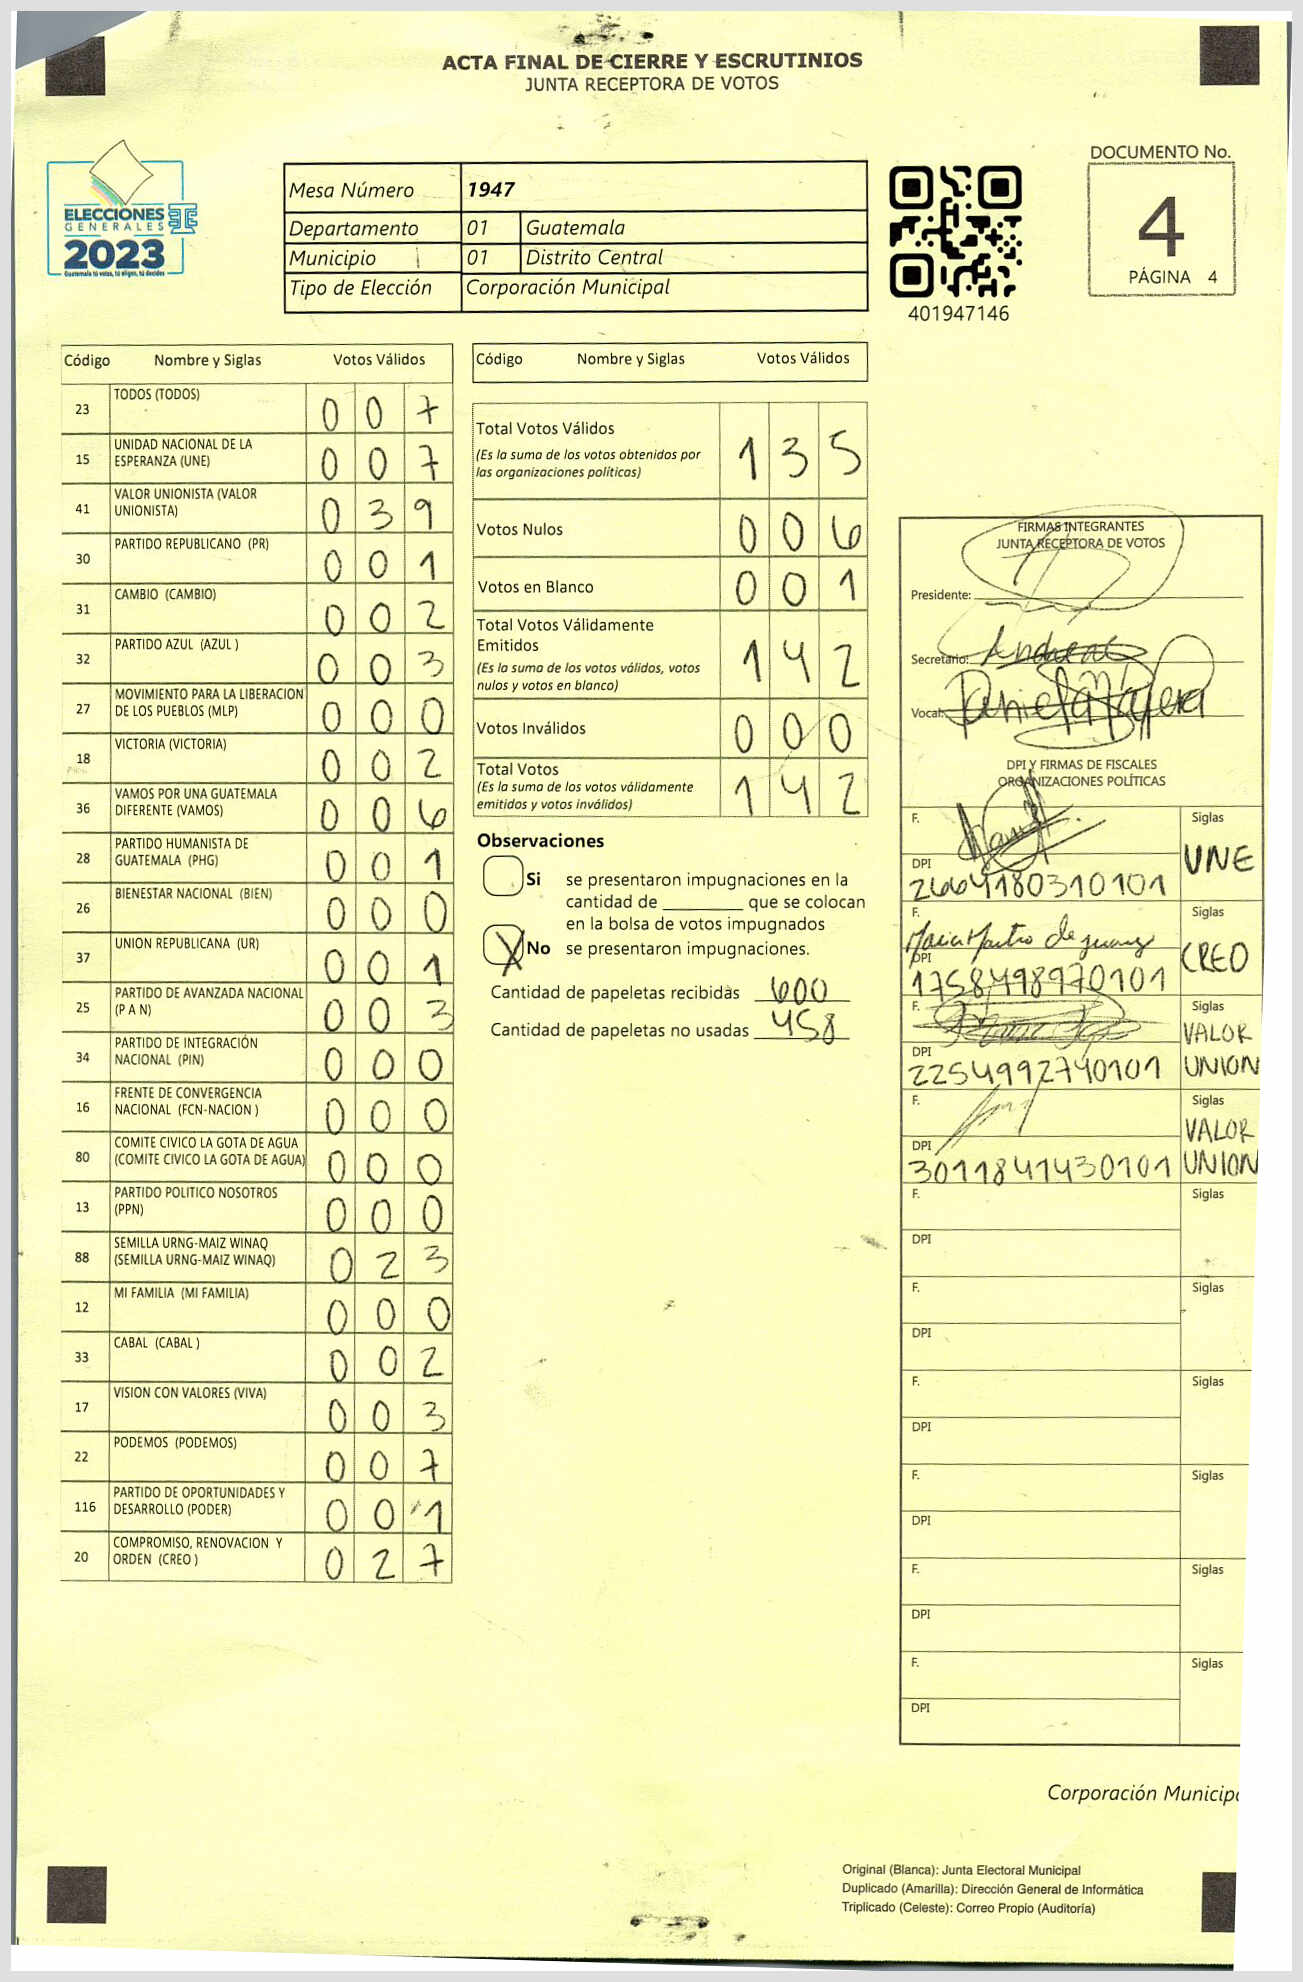 ACTA FINAL DE CIERRE Y ESCRUTINIOS
JUNTA RECEPTORA DE VOTOS
ELECCIONES
GENERALES
2023
Guatemala tú votas, tú eliges, tú decides
Mesa Número 1947
Departamento 01 Guatemala
Municipio 01 Distrito Central
Tipo de Elección Corporación Municipal
401947146
DOCUMENTO No.
4
PÁGINA 4
Código Nombre y Siglas Votos Válidos
23 TODOS (TODOS) 0 0 7
15 UNIDAD NACIONAL DE LA ESPERANZA (UNE) 0 0 7
41 VALOR UNIONISTA (VALOR UNIONISTA) 0 3 9
30 PARTIDO REPUBLICANO (PR) 0 0 1
31 CAMBIO (CAMBIO) 0 0 2
32 PARTIDO AZUL (AZUL ) 0 0 3
27 MOVIMIENTO PARA LA LIBERACION DE LOS PUEBLOS (MLP) 0 0 0
18 VICTORIA (VICTORIA) 0 0 2
36 VAMOS POR UNA GUATEMALA DIFERENTE (VAMOS) 0 0 6
28 PARTIDO HUMANISTA DE GUATEMALA (PHG) 0 0 1
26 BIENESTAR NACIONAL (BIEN) 0 0 0
37 UNION REPUBLICANA (UR) 0 0 1
25 PARTIDO DE AVANZADA NACIONAL (P A N) 0 0 3
34 PARTIDO DE INTEGRACIÓN NACIONAL (PIN) 0 0 0
16 FRENTE DE CONVERGENCIA NACIONAL (FCN-NACION ) 0 0 0
80 COMITE CIVICO LA GOTA DE AGUA (COMITE CIVICO LA GOTA DE AGUA) 0 0 0
13 PARTIDO POLITICO NOSOTROS (PPN) 0 0 0
88 SEMILLA URNG-MAIZ WINAQ (SEMILLA URNG-MAIZ WINAQ) 0 2 3
12 MI FAMILIA (MI FAMILIA) 0 0 0
33 CABAL (CABAL ) 0 0 2
17 VISION CON VALORES (VIVA) 0 0 3
22 PODEMOS (PODEMOS) 0 0 7
116 PARTIDO DE OPORTUNIDADES Y DESARROLLO (PODER) 0 0 1
20 COMPROMISO, RENOVACION Y ORDEN (CREO ) 0 2 7
Código Nombre y Siglas Votos Válidos
Total Votos Válidos 1 3 5
(Es la suma de los votos obtenidos por
las organizaciones políticas)
Votos Nulos 0 0 6
Votos en Blanco 0 0 1
Total Votos Válidamente
Emitidos 1 4 2
(Es la suma de los votos válidos, votos
nulos y votos en blanco)
Votos Inválidos 0 0 0
Total Votos 1 4 2
(Es la suma de los votos válidamente
emitidos y votos inválidos)
Observaciones
Si se presentaron impugnaciones en la
cantidad de ________ que se colocan
en la bolsa de votos impugnados
X No se presentaron impugnaciones.
Cantidad de papeletas recibidas 600
Cantidad de papeletas no usadas 458
FIRMAS INTEGRANTES
JUNTA RECEPTORA DE VOTOS
Presidente:
Secretario:
Vocal: Daniela
DPI Y FIRMAS DE FISCALES
ORGANIZACIONES POLÍTICAS
F. Siglas
DPI UNE
2664180310101
F. Siglas
DPI CREO
1758498970101
F. Siglas
VALOR
DPI
2254992740101 UNION
F. Siglas
VALOR
DPI
3011841430101 UNION
F. Siglas
DPI
F. Siglas
DPI
F. Siglas
DPI
F. Siglas
DPI
F. Siglas
DPI
F. Siglas
DPI
Corporación Municipa
Original (Blanca): Junta Electoral Municipal
Duplicado (Amarilla): Dirección General de Informática
Triplicado (Celeste): Correo Propio (Auditoría)